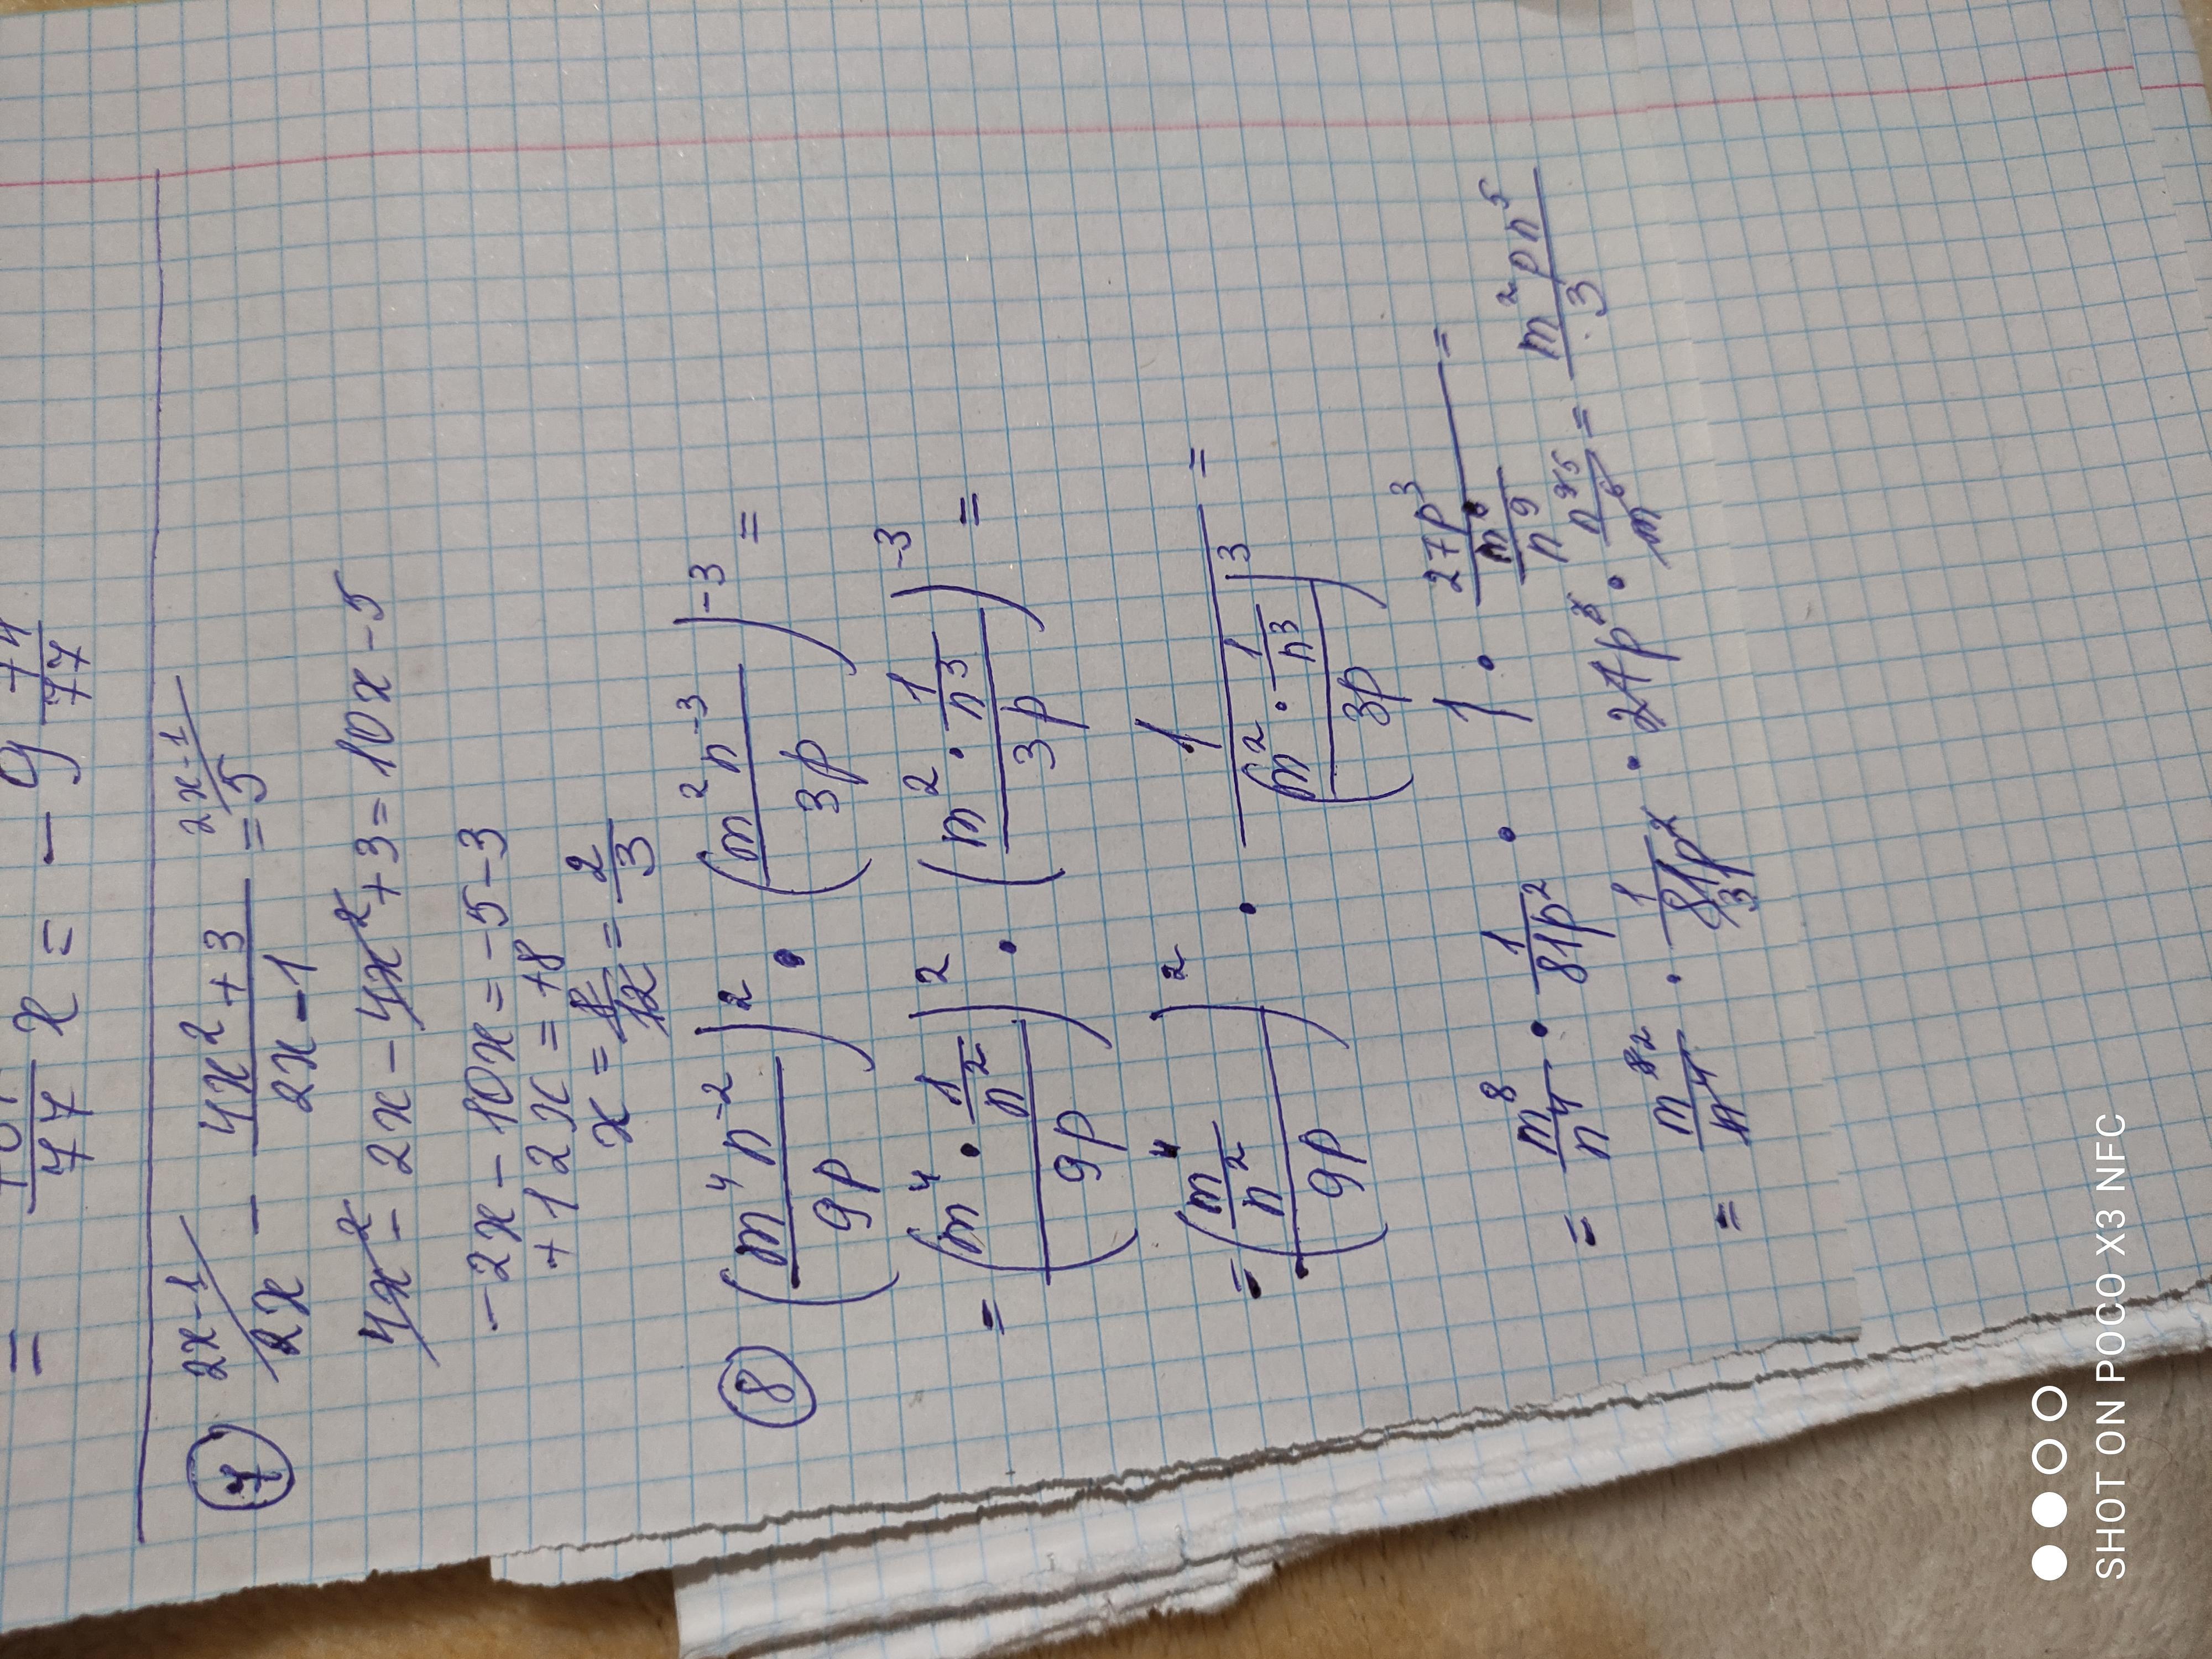 = 101/77 x = - 9 74/77
⑦ 2x-1/ 2x - (4x²+3)/(2x-1) = 5 2x-1/
4x² - 2x - 4x² + 3 = 10x - 5
-2x - 10x = -5 - 3
+12x = +8
x = 8/12 = 2/3
⑧ (m⁴n⁻²/9p)² · (m²n⁻³/3p)⁻³ =
= (m⁴ · 1/n² / 9p)² · (m² · 1/n³ / 3p)⁻³ =
= (m⁴/n² / 9p)² · 1/(m² · 1/n³ / 3p)³ =
= m⁸/n⁴ · 1/81p² · 1 · 27p³/(m⁶/n⁹) =
= m⁸ ²/n⁴ · 1/81p² 3 · 27p³ · n⁹ ⁵/m⁶ = m²pn⁵/3
SHOT ON POCO X3 NFC